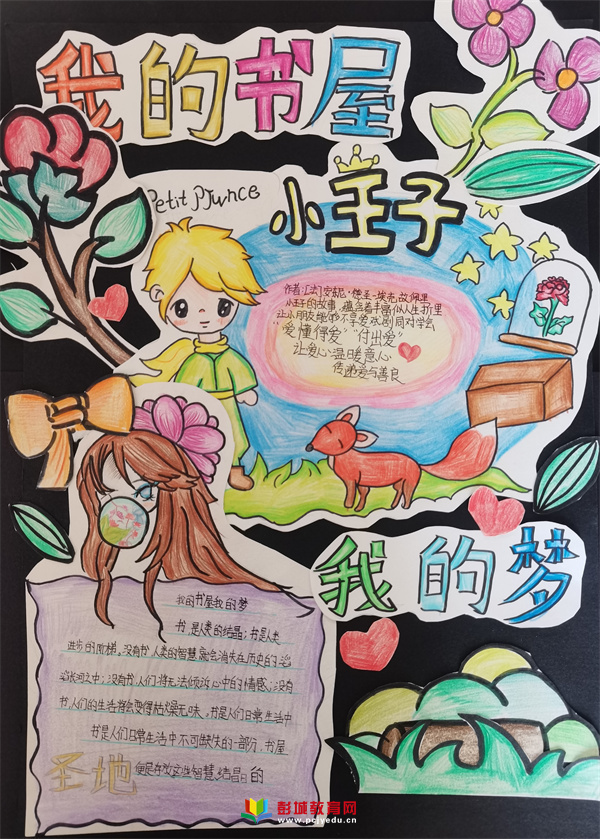 我的书屋
Petit Prince
小王子
作者:[法]安东尼·德·圣-埃克
小王子的故事
让小朋友能够
"爱懂得爱""付出爱"
让爱心温暖意心
传递爱与善良
我的梦
我的书屋我的梦
书,是人类的结晶;书是人类
进步的阶梯。没有书,人类的智慧就会消失在历史的滔
滔长河之中;没有书,人们将无法倾诉心中的情感;没有
书,人们的生活将会变得枯燥无味。书是人们日常生活中
书是人们日常生活中不可缺失的一部分,书屋
便是存放这些智慧结晶的
圣地
彭城教育网
www.pcjyedu.cn